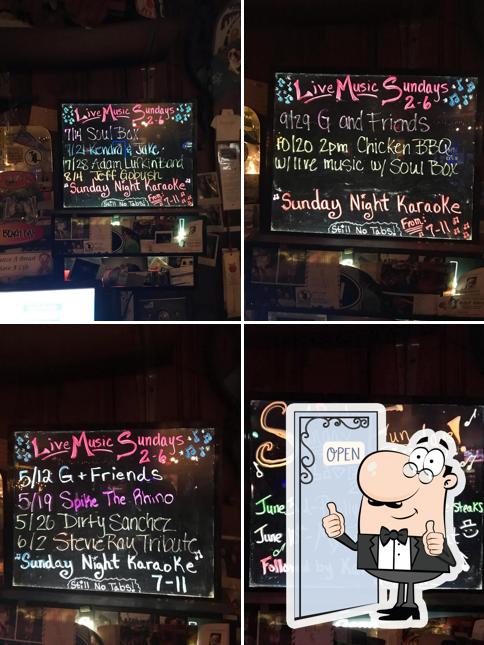 Live Music Sundays
2-6
7/14 Soul Box
7/21 Kendra & Jake
7/28 Adam Lufkin Band
8/4 Jeff
"Sunday Night Karaoke"
From 7-11
(Still No Tabs!)
Live Music Sundays
2-6
9/29 G and Friends
10/20 2pm Chicken BBQ
w/live music w/ Soul Box
Sunday Night Karaoke
From 7-11
Still No Tabs!
Live Music Sundays
2-6
5/12 G + Friends
5/19 Spike The Rhino
5/26 Dirty Sanchez
6/2 Stevie Ray Tribute
"Sunday Night Karaoke"
7-11
(Still No Tabs!)
OPEN
June
Steaks
June
Followed by K